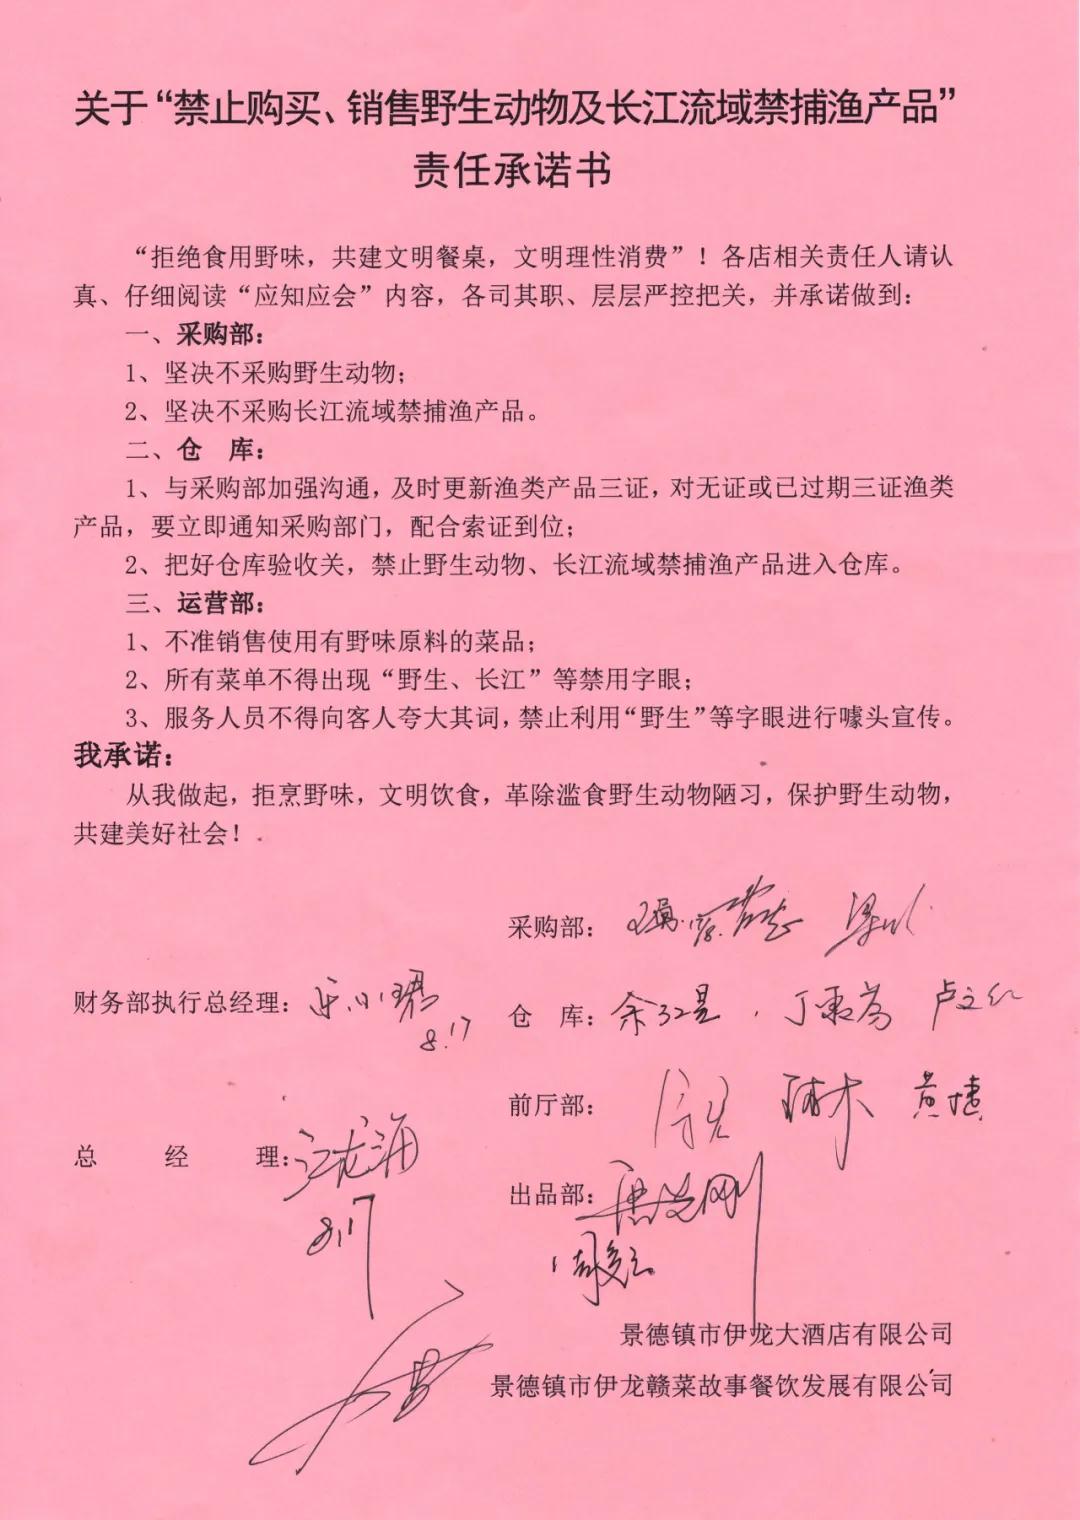 关于“禁止购买、销售野生动物及长江流域禁捕渔产品”
责任承诺书
“拒绝食用野味，共建文明餐桌，文明理性消费”！各店相关责任人请认
真、仔细阅读“应知应会”内容，各司其职、层层严控把关，并承诺做到：
一、采购部：
1、坚决不采购野生动物；
2、坚决不采购长江流域禁捕渔产品。
二、仓　库：
1、与采购部加强沟通，及时更新渔类产品三证，对无证或已过期三证渔类
产品，要立即通知采购部门，配合索证到位；
2、把好仓库验收关，禁止野生动物、长江流域禁捕渔产品进入仓库。
三、运营部：
1、不准销售使用有野味原料的菜品；
2、所有菜单不得出现“野生、长江”等禁用字眼；
3、服务人员不得向客人夸大其词，禁止利用“野生”等字眼进行噱头宣传。
我承诺：
从我做起，拒烹野味，文明饮食，革除滥食野生动物陋习，保护野生动物，
共建美好社会！
采购部：
财务部执行总经理：
8.17
仓　库：
前厅部：黄
总　经　理：江龙海
8.17
出品部：
景德镇市伊龙大酒店有限公司
景德镇市伊龙赣菜故事餐饮发展有限公司